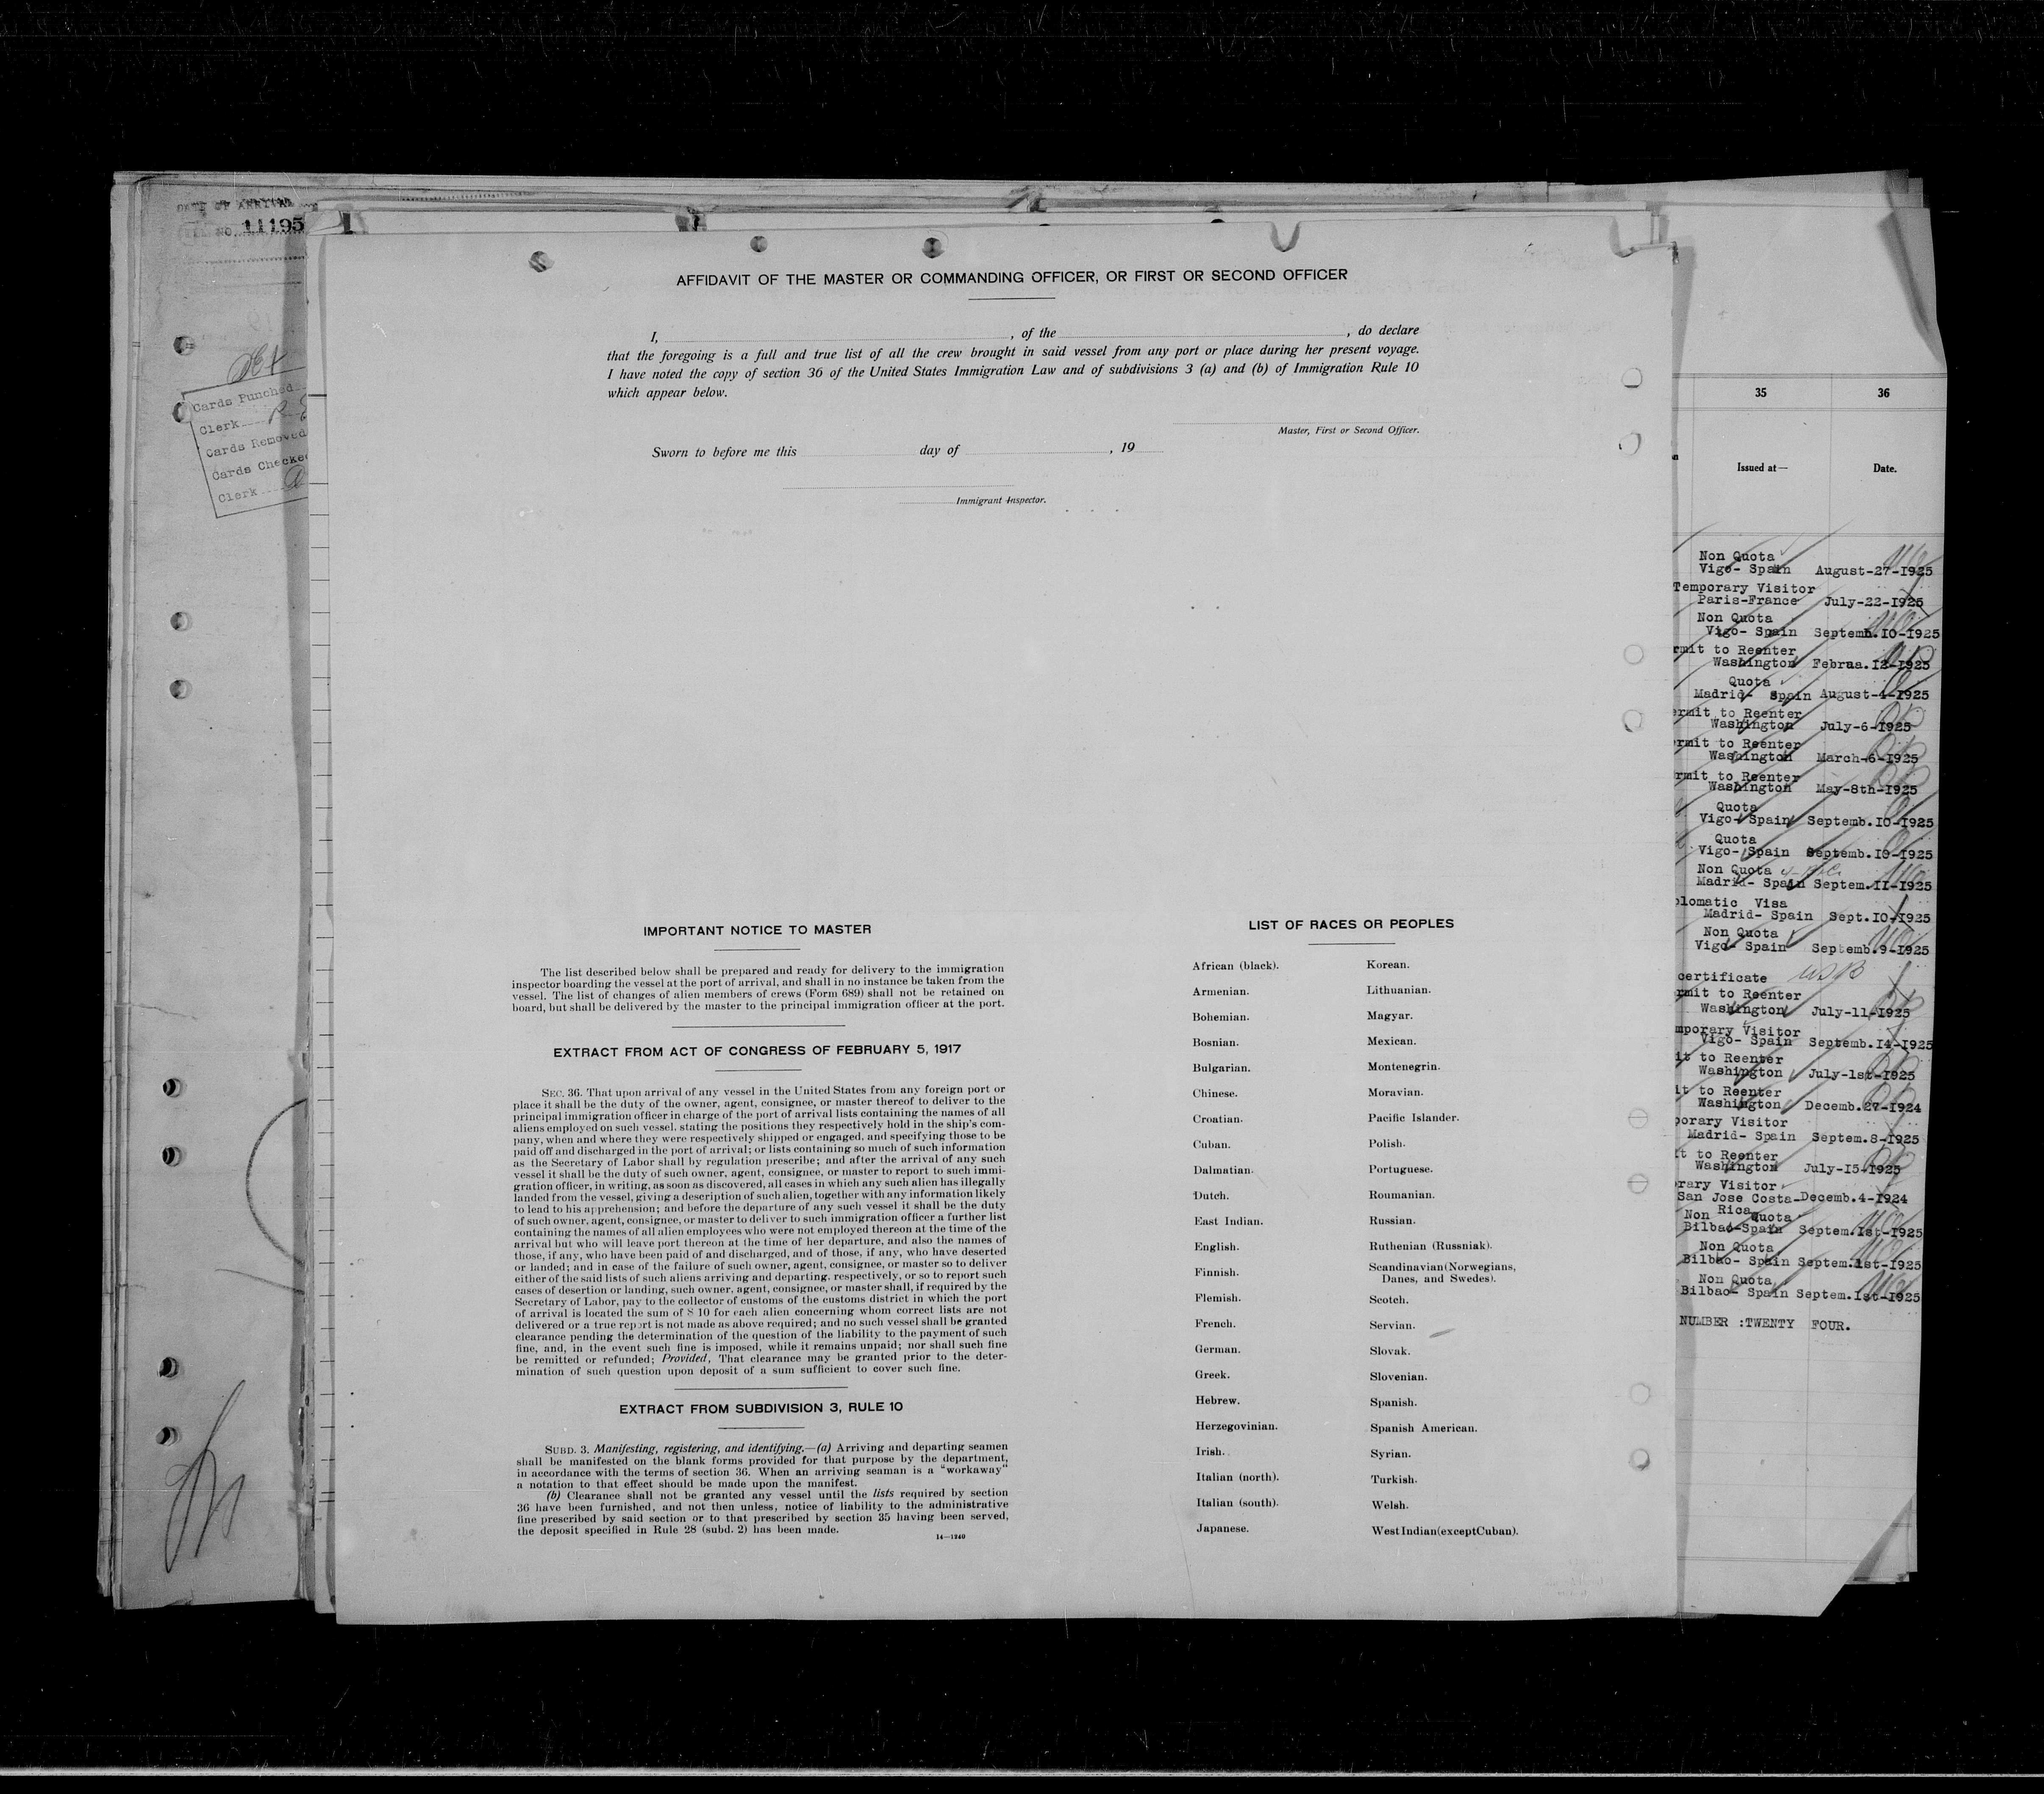 DATE OF ARRIVAL
NO. 11195
Cards Punched
Clerk
Cards Removed
Cards Checked
Clerk
AFFIDAVIT OF THE MASTER OR COMMANDING OFFICER, OR FIRST OR SECOND OFFICER
I, , of the , do declare
that the foregoing is a full and true list of all the crew brought in said vessel from any port or place during her present voyage.
I have noted the copy of section 36 of the United States Immigration Law and of subdivisions 3 (a) and (b) of Immigration Rule 10
which appear below.
Master, First or Second Officer.
Sworn to before me this day of , 19
Immigrant Inspector.
IMPORTANT NOTICE TO MASTER
The list described below shall be prepared and ready for delivery to the immigration
inspector boarding the vessel at the port of arrival, and shall in no instance be taken from the
vessel. The list of changes of alien members of crews (Form 689) shall not be retained on
board, but shall be delivered by the master to the principal immigration officer at the port.
EXTRACT FROM ACT OF CONGRESS OF FEBRUARY 5, 1917
SEC. 36. That upon arrival of any vessel in the United States from any foreign port or
place it shall be the duty of the owner, agent, consignee, or master thereof to deliver to the
principal immigration officer in charge of the port of arrival lists containing the names of all
aliens employed on such vessel, stating the positions they respectively hold in the ship's com-
pany, when and where they were respectively shipped or engaged, and specifying those to be
paid off and discharged in the port of arrival; or lists containing so much of such information
as the Secretary of Labor shall by regulation prescribe; and after the arrival of any such
vessel it shall be the duty of such owner, agent, consignee, or master to report to such immi-
gration officer, in writing, as soon as discovered, all cases in which any such alien has illegally
landed from the vessel, giving a description of such alien, together with any information likely
to lead to his apprehension; and before the departure of any such vessel it shall be the duty
of such owner, agent, consignee, or master to deliver to such immigration officer a further list
containing the names of all alien employees who were not employed thereon at the time of the
arrival but who will leave port thereon at the time of her departure, and also the names of
those, if any, who have been paid of and discharged, and of those, if any, who have deserted
or landed; and in case of the failure of such owner, agent, consignee, or master so to deliver
either of the said lists of such aliens arriving and departing, respectively, or so to report such
cases of desertion or landing, such owner, agent, consignee, or master shall, if required by the
Secretary of Labor, pay to the collector of customs of the customs district in which the port
of arrival is located the sum of $ 10 for each alien concerning whom correct lists are not
delivered or a true report is not made as above required; and no such vessel shall be granted
clearance pending the determination of the question of the liability to the payment of such
fine, and, in the event such fine is imposed, while it remains unpaid; nor shall such fine
be remitted or refunded; Provided, That clearance may be granted prior to the deter-
mination of such question upon deposit of a sum sufficient to cover such fine.
EXTRACT FROM SUBDIVISION 3, RULE 10
SUBD. 3. Manifesting, registering, and identifying.—(a) Arriving and departing seamen
shall be manifested on the blank forms provided for that purpose by the department,
in accordance with the terms of section 36. When an arriving seaman is a "workaway"
a notation to that effect should be made upon the manifest.
(b) Clearance shall not be granted any vessel until the lists required by section
36 have been furnished, and not then unless, notice of liability to the administrative
fine prescribed by said section or to that prescribed by section 35 having been served,
the deposit specified in Rule 28 (subd. 2) has been made.
14—1240
LIST OF RACES OR PEOPLES
African (black).
Armenian.
Bohemian.
Bosnian.
Bulgarian.
Chinese.
Croatian.
Cuban.
Dalmatian.
Dutch.
East Indian.
English.
Finnish.
Flemish.
French.
German.
Greek.
Hebrew.
Herzegovinian.
Irish.
Italian (north).
Italian (south).
Japanese.
Korean.
Lithuanian.
Magyar.
Mexican.
Montenegrin.
Moravian.
Pacific Islander.
Polish.
Portuguese.
Roumanian.
Russian.
Ruthenian (Russniak).
Scandinavian(Norwegians,
Danes, and Swedes).
Scotch.
Servian.
Slovak.
Slovenian.
Spanish.
Spanish American.
Syrian.
Turkish.
Welsh.
West Indian(except Cuban).
35 36
Issued at— Date.
Non Quota
Vigo- Spain August-27-1925
Temporary Visitor
Paris-France July-22-1925
Non Quota
Vigo- Spain Septemb.10-1925
rmit to Reenter
Washington Februa.12-1925
Quota
Madrid- Spain August-4-1925
ermit to Reenter
Washington July-6-1925
rmit to Reenter
Washington March-6-1925
rmit to Reenter
Washington May-8th-1925
Quota
Vigo- Spain Septemb.10-1925
Quota
Vigo- Spain Septemb.10-1925
Non Quota
Madrid- Spain Septem.11-1925
plomatic Visa
Madrid- Spain Sept.10-1925
Non Quota
Vigo- Spain Septemb.9-1925
certificate USB
rmit to Reenter
Washington July-11-1925
mporary Visitor
Vigo- Spain Septemb.14-1925
it to Reenter
Washington July-1st-1925
it to Reenter
Washington Decemb.27-1924
porary Visitor
Madrid- Spain Septem.8-1925
it to Reenter
Washington July-15-1925
rary Visitor
San Jose Costa-Decemb.4-1924
Rica
Non Quota
Bilbao-Spain Septem.1st-1925
Non Quota
Bilbao- Spain Septem.1st-1925
Non Quota
Bilbao- Spain Septem.1st-1925
NUMBER :TWENTY FOUR.